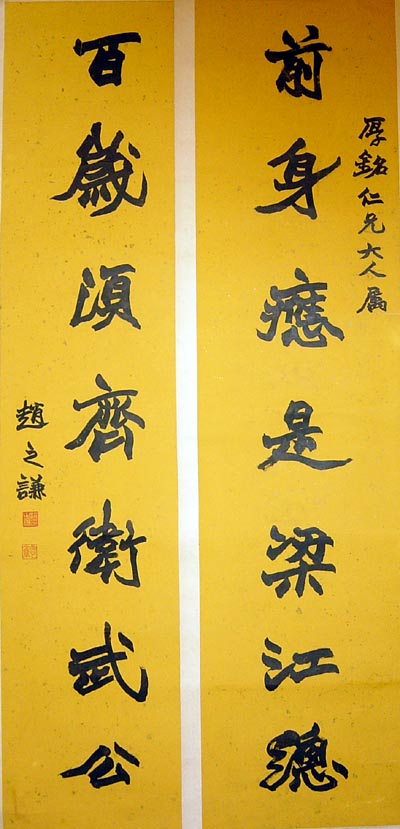 厚銘仁兄大人属
前身應是梁江總
百歲須齊衛武公
趙之謙